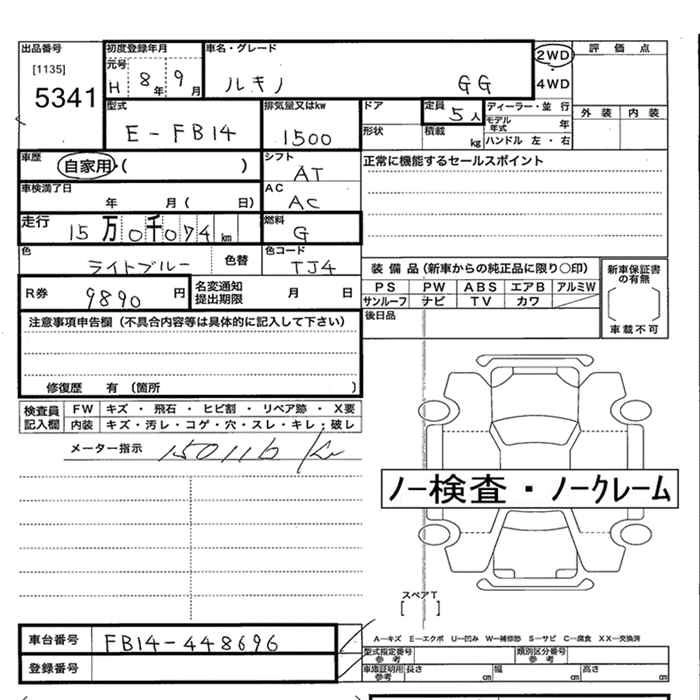 出品番号
[1135]
5341
初度登録年月
元号
H 8年 9月
車名・グレード
ルキノ GG
2WD
・
4WD
評価点
外装 内装
型式
E-FB14
排気量又はkw
1500
ドア
形状
定員
5人
積載
kg
ディーラー・並行
モデル年式 年
ハンドル 左・右
車歴
自家用・( )
シフト
AT
正常に機能するセールスポイント
車検満了日
年 月( 日)
AC
AC
走行
15万0千074km
燃料
G
色
ライトブルー
色替
色コード
TJ4
装備品(新車からの純正品に限り○印)
PS PW ABS エアB アルミW
サンルーフ ナビ TV カワ
新車保証書の有無
[ ]
車載不可
R券
9890円
名変通知
提出期限
月 日
後日品
注意事項申告欄(不具合内容等は具体的に記入して下さい)
修復歴 有(箇所 )
検査員記入欄
FW キズ・飛石・ヒビ割・リペア跡・X要
内装 キズ・汚レ・コゲ・穴・スレ・キレ・破レ
メーター指示 150116 Km
ノー検査・ノークレーム
スペアT
[ ]
車台番号
FB14-448696
登録番号
A―キズ E―エクボ U―凹み W―補修跡 S―サビ C―腐食 XX―交換済
型式指定番号
参考
類別区分番号
参考
車庫証明用
参考
長さ cm 幅 cm 高さ cm